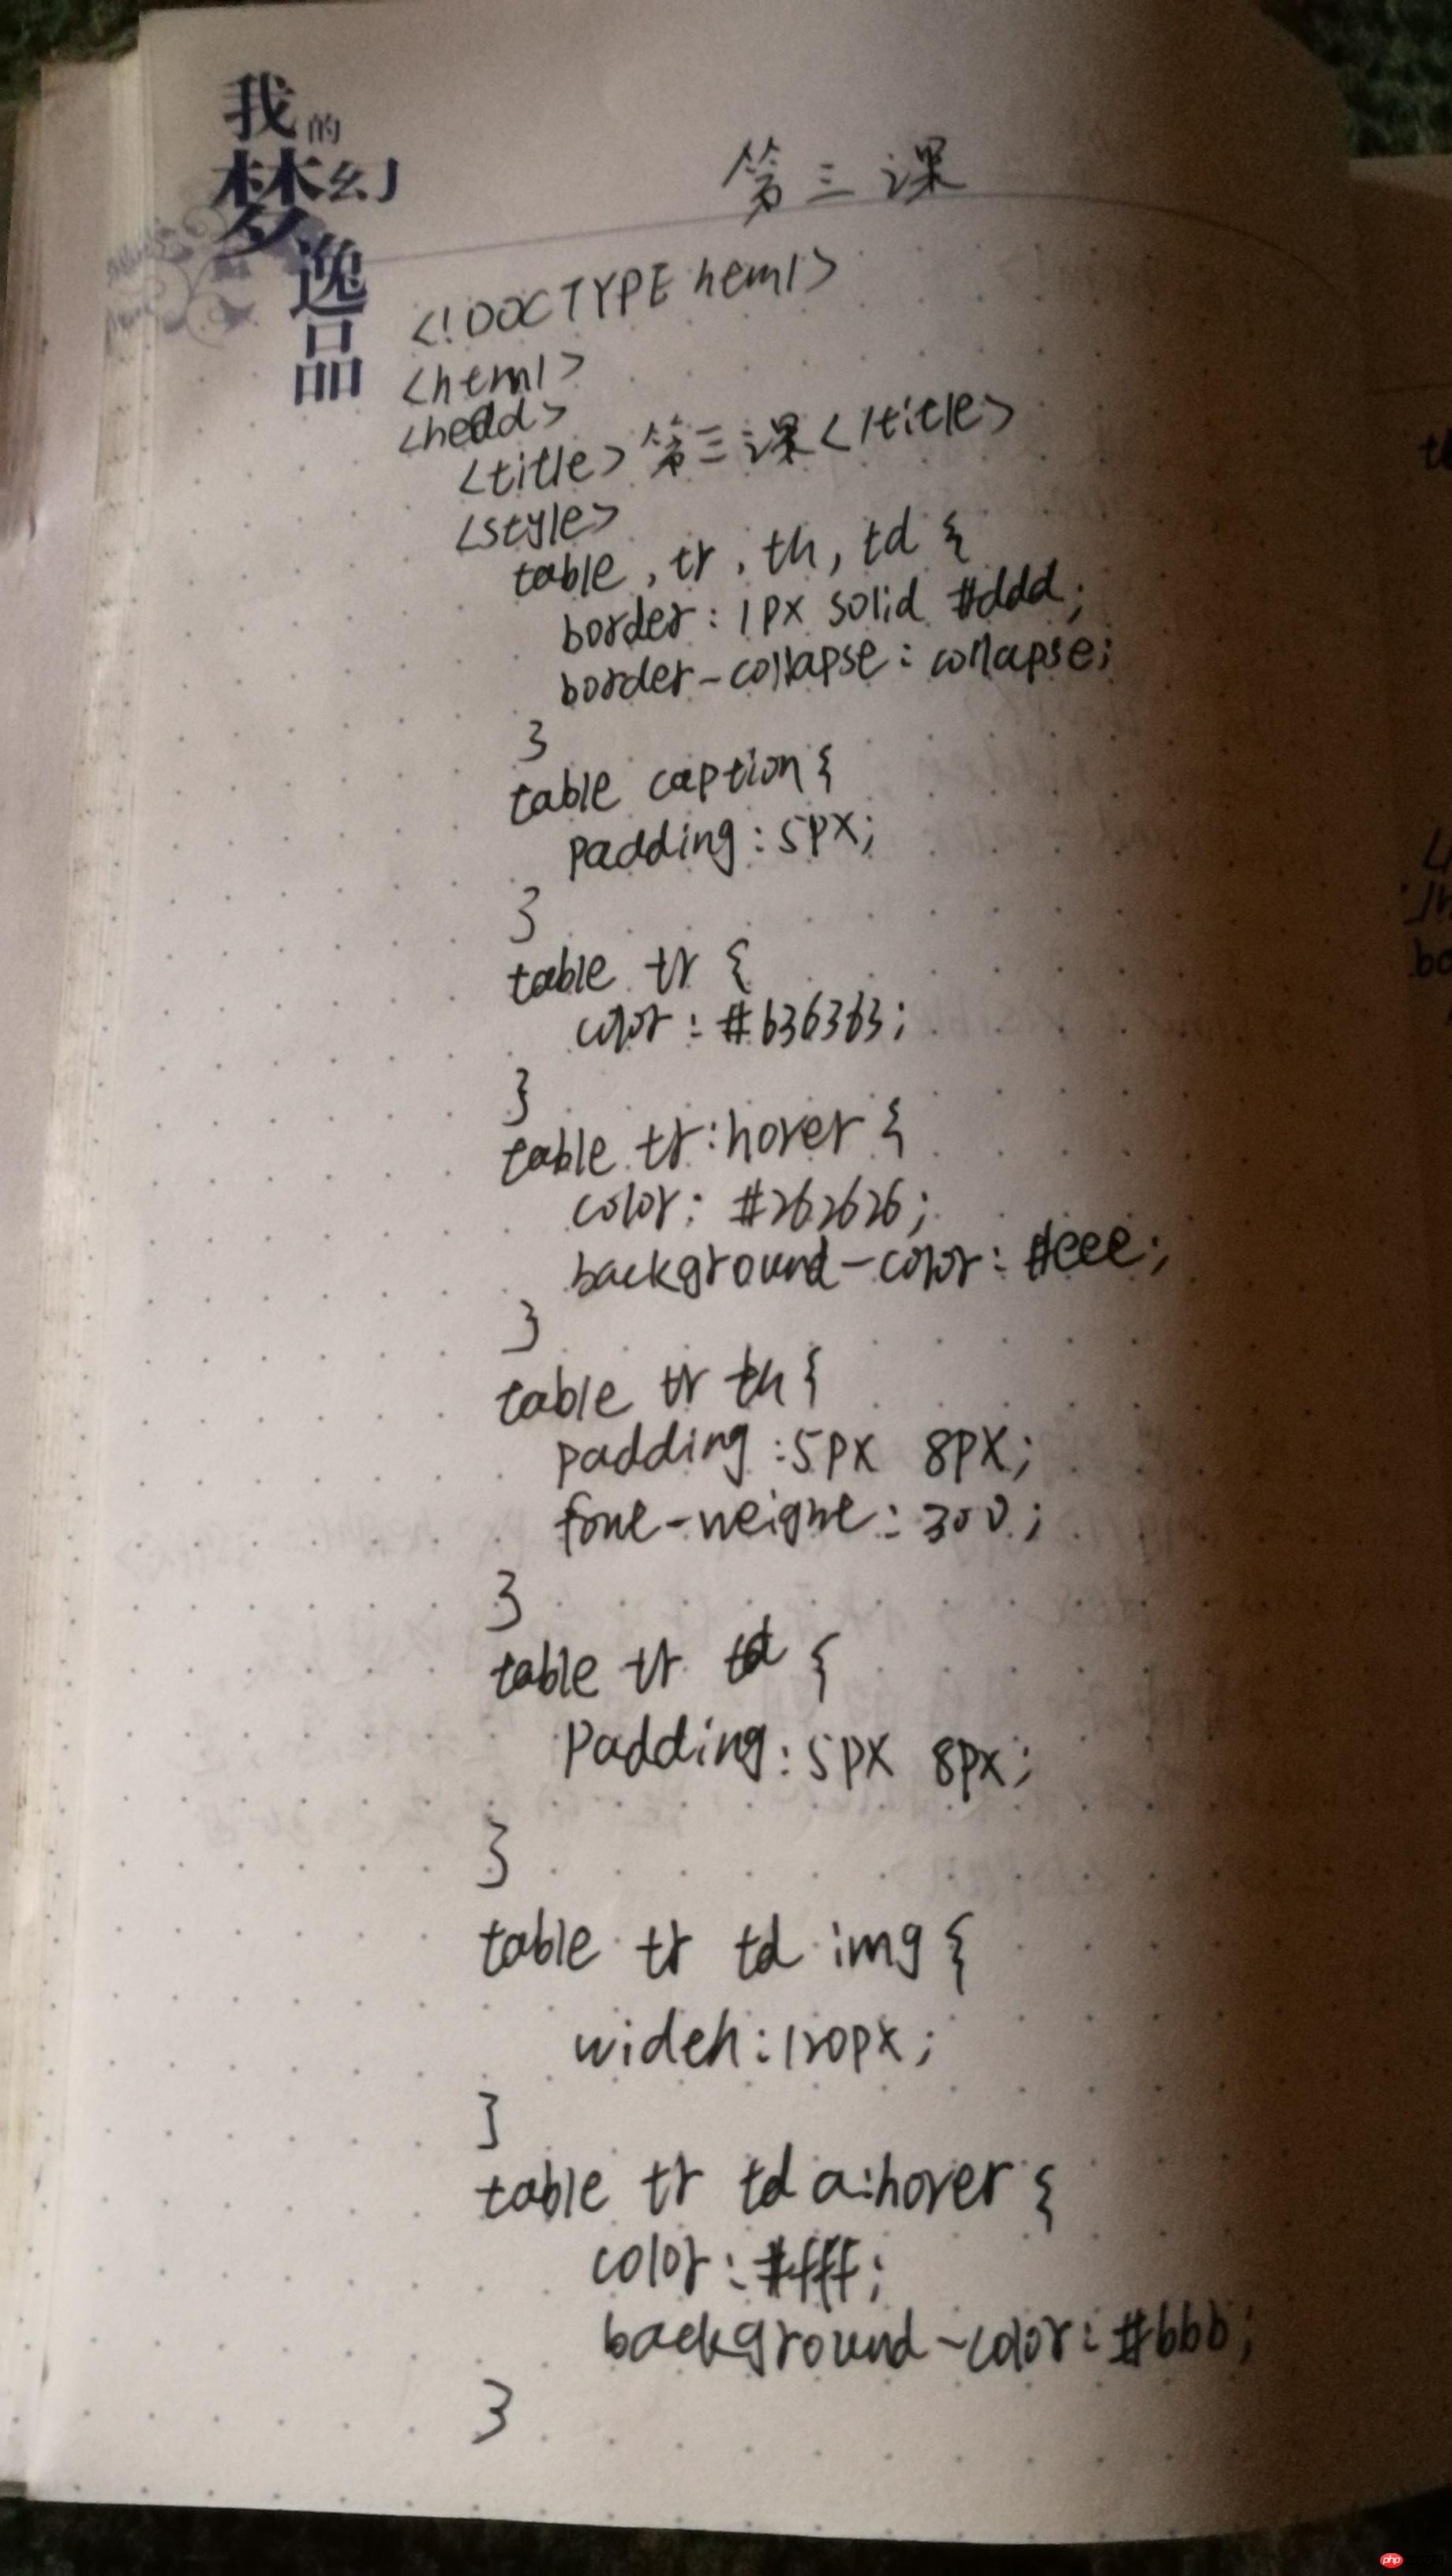 我的
梦幻
逸品
第三课
<!DOCTYPE html>
<html>
<head>
<title>第三课</title>
<style>
table, tr, th, td {
border: 1px solid #ddd;
border-collapse: collapse;
}
table caption{
padding: 5px;
}
table tr {
color: #636363;
}
table tr:hover {
color: #262626;
background-color: #eee;
}
table tr th{
padding: 5px 8px;
font-weight: 300;
}
table tr td {
padding: 5px 8px;
}
table tr td img {
width: 120px;
}
table tr td a:hover {
color: #fff;
background-color: #bbb;
}
php